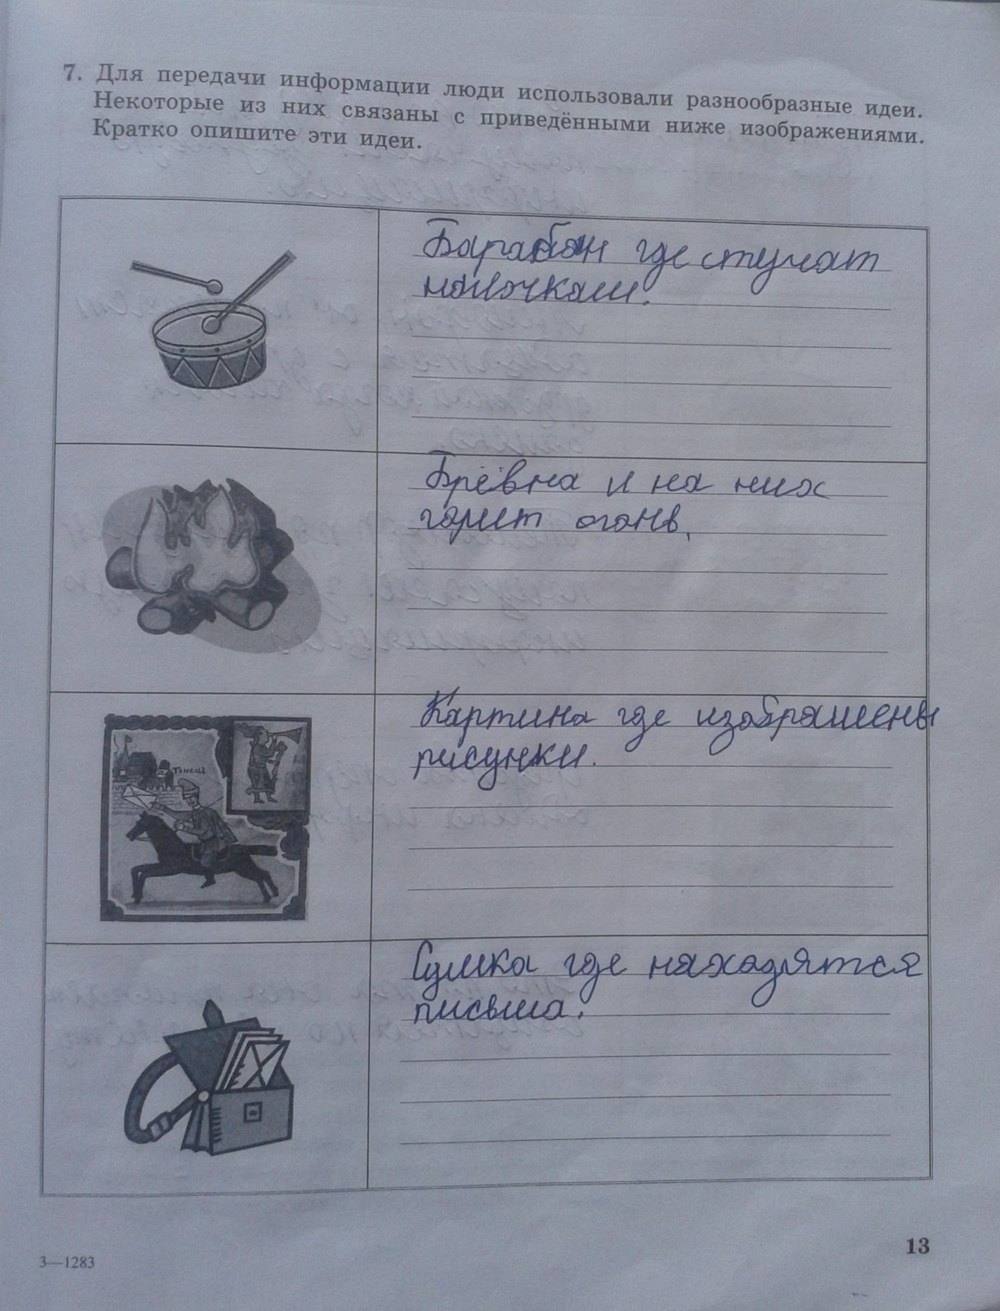 7. Для передачи информации люди использовали разнообразные идеи.
Некоторые из них связаны с приведёнными ниже изображениями.
Кратко опишите эти идеи.
Барабан где стучат
палочками.
Брёвна и на них
горит огонь.
Картина где изображены
рисунки.
Сумка где находятся
письма.
13
3—1283